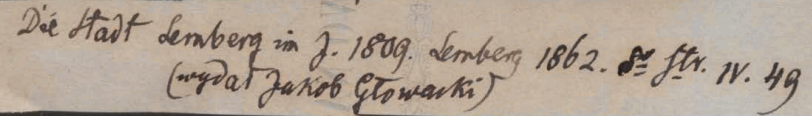 Die Stadt Lemberg im J. 1809. Lemberg 1862. 8º Str. IV. 49
(wydał Jakob Głowacki)